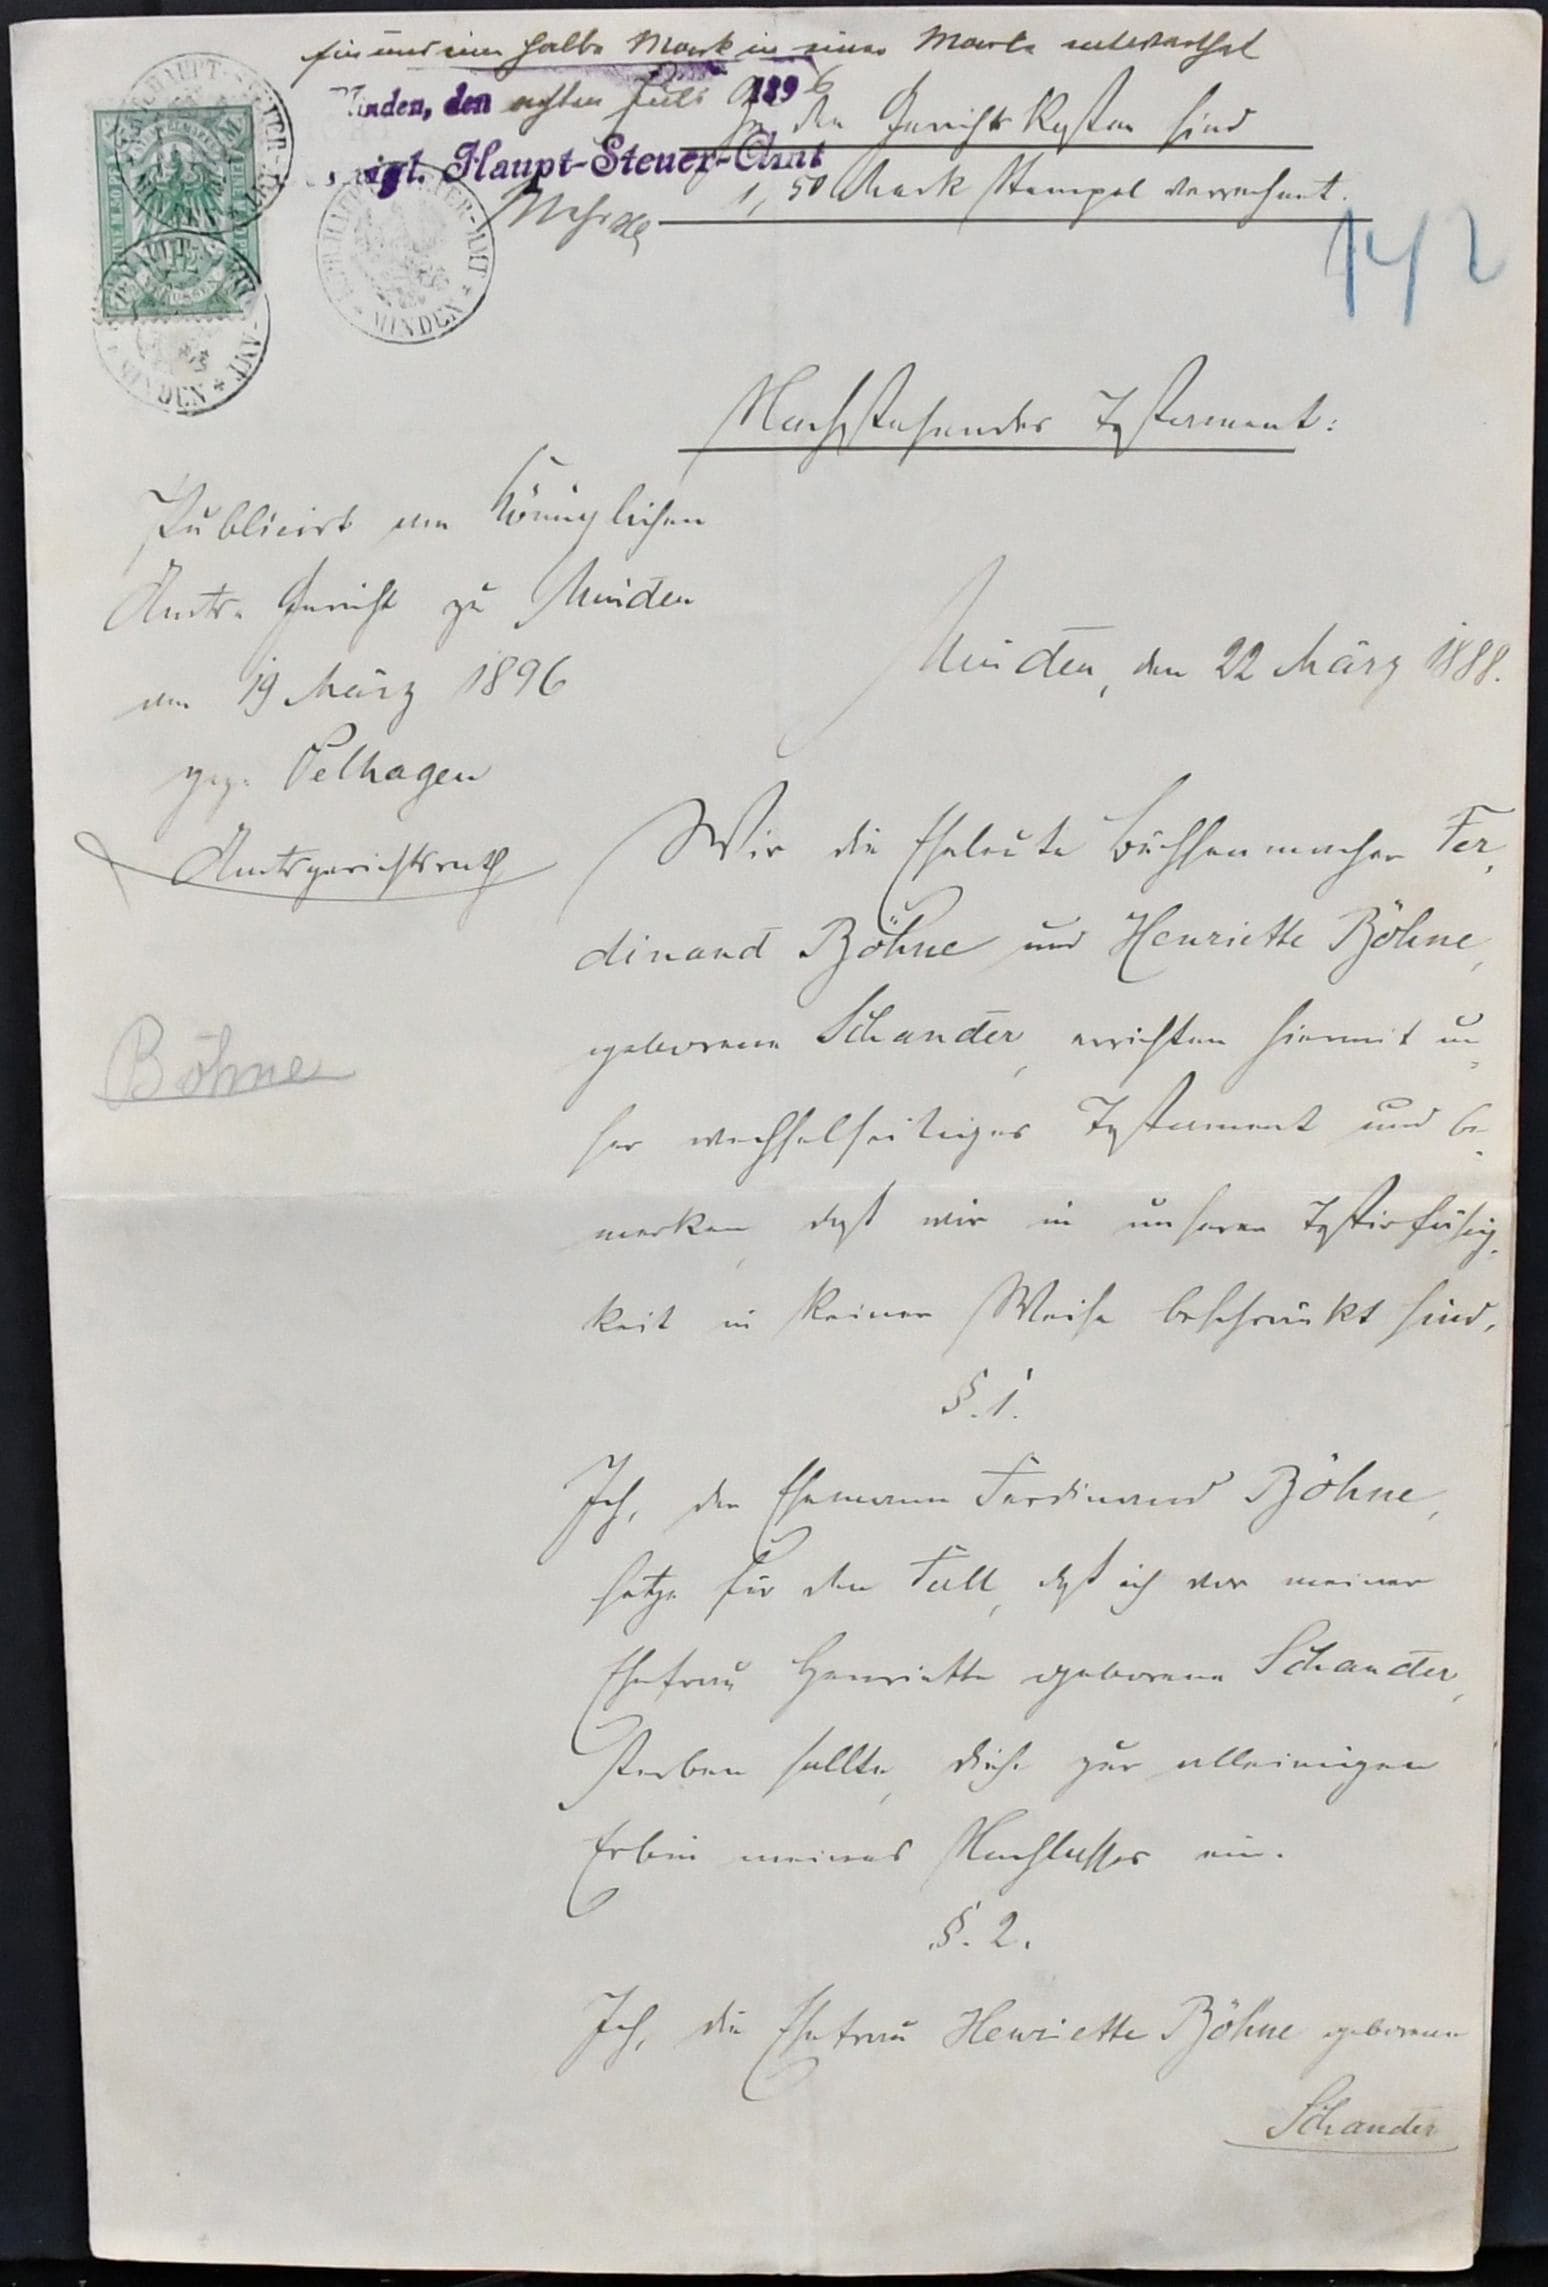 ein und eine halbe Mark in einer Marke
Minden, den achten Juli 1896
Königl. Haupt-Steuer-Amt
In den Gerichtskosten sind
1,50 Mark Stempel verrechnet.
142
HAUPT-STEUER-AMT
MINDEN
HAUPT-STEUER-AMT
MINDEN
Nachstehendes Testament:
Publicirt am Königlichen
Amts-Gericht zu Minden
am 19 März 1896
gez. Velhagen
Amtsgerichtsrath
Böhne
Minden, den 22 März 1888.
Wir die Eheleute Büchsenmacher Fer-
dinand Böhne und Henriette Böhne,
geborene Schander, errichten hiermit un-
ser wechselseitiges Testament und be-
merken, daß wir in unserer Testirfähig-
keit in keiner Weise beschränkt sind.
§. 1.
Ich, der Ehemann Ferdinand Böhne,
setze für den Fall, daß ich vor meiner
Ehefrau Henriette geborene Schander,
sterben sollte, diese zur alleinigen
Erbin meines Nachlasses ein.
§. 2.
Ich, die Ehefrau Henriette Böhne geborene
Schander